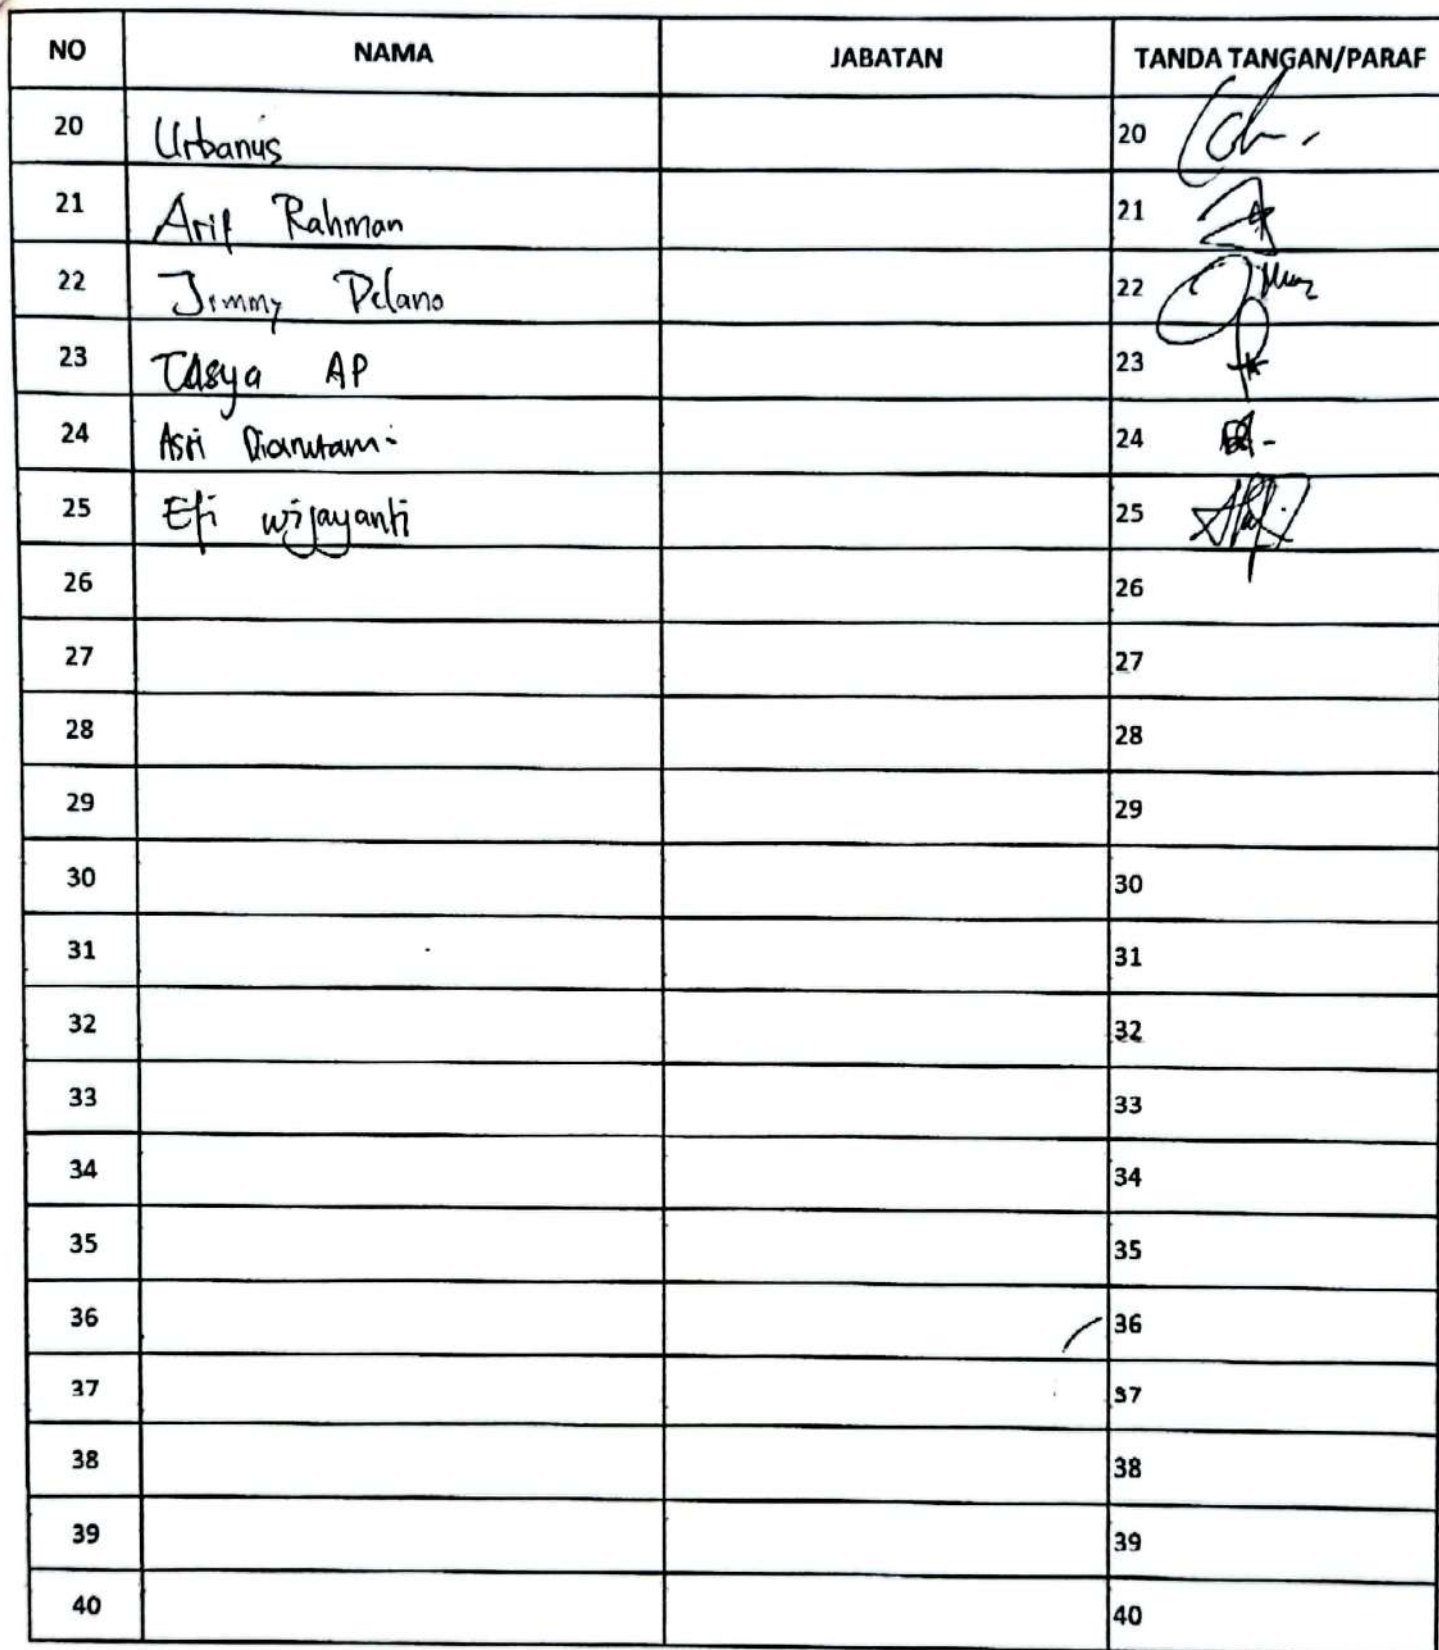 NO NAMA JABATAN TANDA TANGAN/PARAF
20 Urbanus 20
21 Arif Rahman 21
22 Jimmy Delano 22
23 Tasya AP 23
24 Asri Dianutami 24
25 Efi wijayanti 25
26 26
27 27
28 28
29 29
30 30
31 31
32 32
33 33
34 34
35 35
36 36
37 37
38 38
39 39
40 40